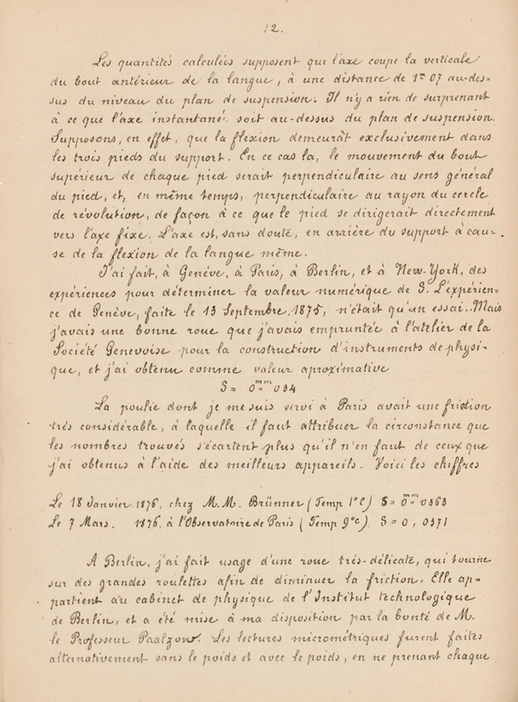 12.
Les quantités calculées supposent que l'axe coupe la verticale
du bout antérieur de la langue, à une distance de 1m 07 au-des-
sus du niveau du plan de suspension. Il n'y a rien de surprenant
à ce que l'axe instantané soit au-dessus du plan de suspension.
Supposons, en effet, que la flexion demeurât exclusivement dans
les trois pieds du support. En ce cas là, le mouvement du bout
supérieur de chaque pied serait perpendiculaire au sens général
du pied, et, en même temps, perpendiculaire au rayon du cercle
de révolution, de façon à ce que le pied se dirigerait directement
vers l'axe fixe. L'axe est, sans doute, en arrière du support à cau-
se de la flexion de la langue même.
J'ai fait, à Genève, à Paris, à Berlin, et à New-York, des
expériences pour déterminer la valeur numérique de S. L'expérien-
ce de Genève, faite le 13 Septembre 1875, n'était qu'un essai. Mais
j'avais une bonne roue que j'avais empruntée à l'atelier de la
Société Genevoise pour la construction d'instruments de physi-
que, et j'ai obtenu comme valeur aproximative
S = 0mm 034
La poulie dont je me suis servi à Paris avait une friction
très considérable, à laquelle il faut attribuer la circonstance que
les nombres trouvés s'écartent plus qu'il n'en faut de ceux que
j'ai obtenus à l'aide des meilleurs appareils. Voici les chiffres
Le 18 Janvier 1876, chez M.M. Brünner (Temp 1°C) S = 0mm 0363
Le 7 Mars. 1876, à l'Observatoire de Paris (Temp 9°C) S = 0, 0371
A Berlin, j'ai fait usage d'une roue très-délicate, qui tourne
sur des grandes roulettes afin de diminuer la friction. Elle ap-
partient au cabinet de physique de l'Institut technologique
de Berlin, et a été mise à ma disposition par la bonté de M.
le Professeur Paalzow. Les lectures micrométriques furent faites
alternativement sans le poids et avec le poids, en ne prenant chaque